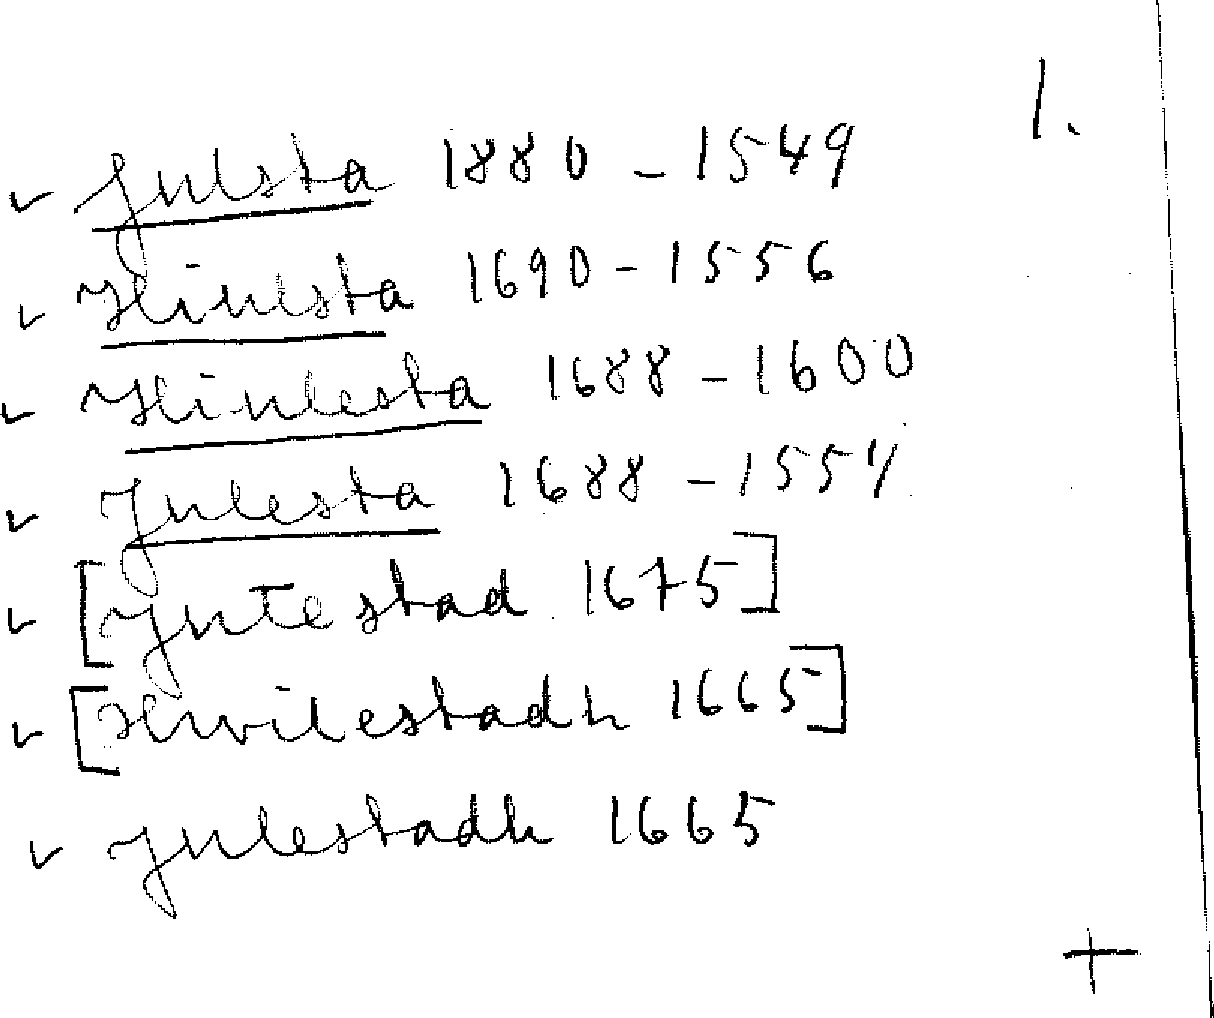 1.
✓ Julsta 1880 – 1549
✓ Hiulsta 1690 – 1556
✓ Hiulesta 1688 – 1600
✓ Julesta 1688 – 1557
✓ [Jutestad 1675]
✓ [Hwilestadh 1665]
✓ Julestadh 1665
+